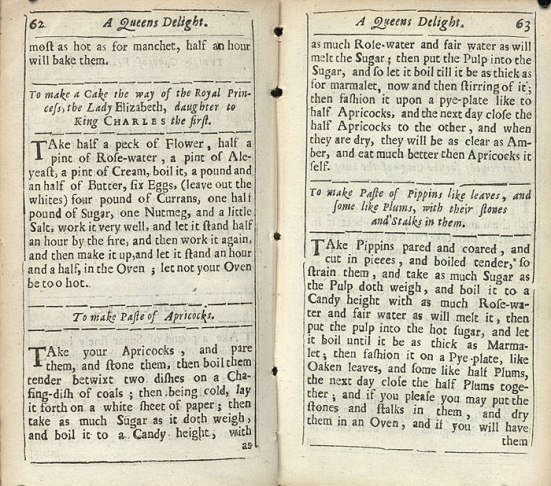 62 A Queens Delight.
moſt as hot as for manchet, half an hour
will bake them.
To make a Cake the way of the Royal Prin-
ceſs, the Lady Elizabeth, daughter to
King CHARLES the firſt.
TAke half a peck of Flower, half a
pint of Roſe-water, a pint of Ale-
yeaſt, a pint of Cream, boil it, a pound and
an half of Butter, ſix Eggs, (leave out the
whites) four pound of Currans, one half
pound of Sugar, one Nutmeg, and a little
Salt, work it very well, and let it ſtand half
an hour by the fire, and then work it again,
and then make it up, and let it ſtand an hour
and a half, in the Oven ; let not your Oven
be too hot.
To make Paſte of Apricocks.
TAke your Apricocks, and pare
them, and ſtone them, then boil them
tender betwixt two diſhes on a Cha-
fing-diſh of coals ; then being cold, lay
it forth on a white ſheet of paper ; then
take as much Sugar as it doth weigh,
and boil it to a Candy height, with
as
A Queens Delight. 63
as much Roſe-water and fair water as will
melt the Sugar ; then put the Pulp into the
Sugar, and ſo let it boil till it be as thick as
for marmalet, now and then ſtirring of it ;
then faſhion it upon a pye-plate like to
half Apricocks, and the next day cloſe the
half Apricocks to the other, and when
they are dry, they will be as clear as Am-
ber, and eat much better then Apricocks it
ſelf.
To make Paſte of Pippins like leaves, and
ſome like Plums, with their ſtones
and Stalks in them.
TAke Pippins pared and coared, and
cut in pieces, and boiled tender, ſo
ſtrain them, and take as much Sugar as
the Pulp doth weigh, and boil it to a
Candy height with as much Roſe-wa-
ter and fair water as will melt it, then
put the pulp into the hot ſugar, and let
it boil until it be as thick as Marma-
let ; then faſhion it on a Pye-plate, like
Oaken leaves, and ſome like half Plums,
the next day cloſe the half Plums toge-
ther ; and if you pleaſe you may put the
ſtones and ſtalks in them, and dry
them in an Oven, and if you will have
them